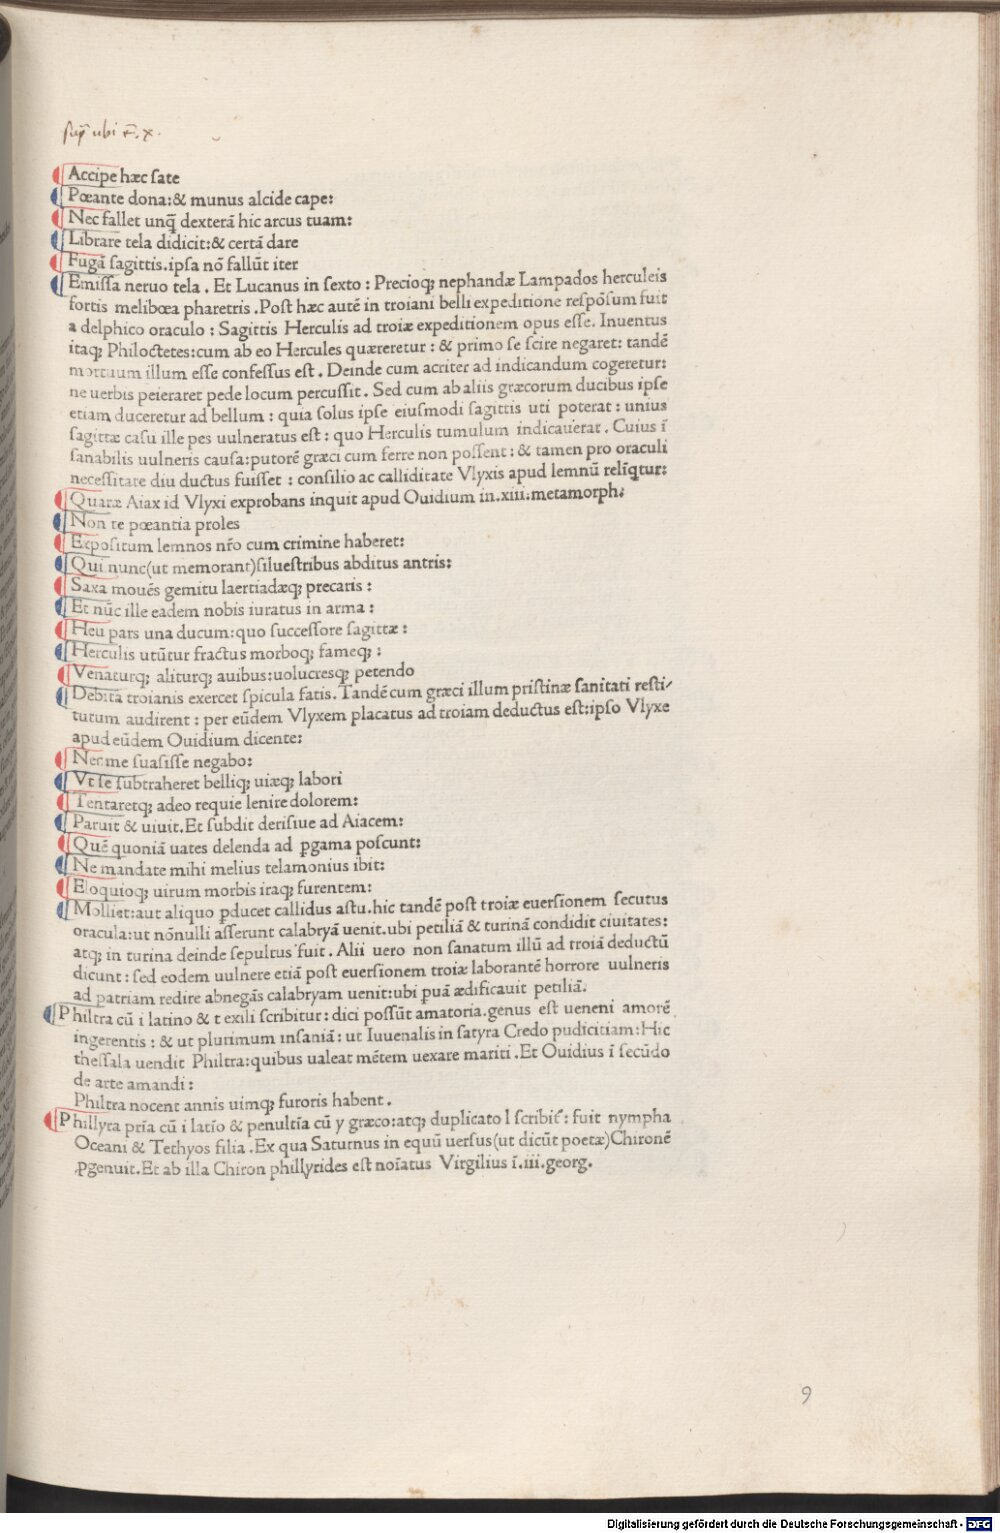 Accipe hæc ſate
Pœante dona:& munus alcide cape:
Nec fallet unq̃ dexterã hic arcus tuam:
Librare tela didicit:& certã dare
Fugã ſagittis.ipſa nõ fallũt iter
Emiſſa neruo tela . Et Lucanus in ſexto : Precioq; nephandæ Lampados herculeis
fortis melibœa pharetris .Poſt hæc autẽ in troiani belli expeditione reſpõſum fuit
a delphico oraculo : Sagittis Herculis ad troiæ expeditionem opus eſſe. Inuentus
itaq; Philoctetes:cum ab eo Hercules quæreretur : & primo ſe ſcire negaret: tandẽ
mortuum illum eſſe confeſſus eſt . Deinde cum acriter ad indicandum cogeretur:
ne uerbis peieraret pede locum percuſſit . Sed cum ab aliis græcorum ducibus ipſe
etiam duceretur ad bellum : quia ſolus ipſe eiuſmodi ſagittis uti poterat : unius
ſagittæ caſu ille pes uulneratus eſt : quo Herculis tumulum indicauerat . Cuius ĩ
ſanabilis uulneris cauſa:putorẽ græci cum ferre non poſſent : & tamen pro oraculi
neceſſitate diu ductus fuiſſet : conſilio ac calliditate Vlyxis apud lemnũ relĩqtur:
Quaræ Aiax id Vlyxi exprobans inquit apud Ouidium in.xiii.metamorph.
Non te pœantia proles
Expoſitum lemnos nr̃o cum crimine haberet:
Qui nunc(ut memorant)ſilueſtribus abditus antris:
Saxa mouẽs gemitu laertiadæq; precaris :
Et nũc ille eadem nobis iuratus in arma :
Heu pars una ducum:quo ſucceſſore ſagittæ :
Herculis utũtur fractus morboq; fameq; :
Venaturq; aliturq; auibus:uolucreſq; petendo
Debita troianis exercet ſpicula fatis . Tandẽ cum græci illum priſtinæ ſanitati reſti/
tutum audirent : per eũdem Vlyxem placatus ad troiam deductus eſt:ipſo Vlyxe
apud eũdem Ouidium dicente:
Nec me ſuaſiſſe negabo:
Vt ſe ſubtraheret belliq; uiæq; labori
Tentaretq; adeo requie lenire dolorem:
Paruit & uiuit.Et ſubdit deriſiue ad Aiacem:
Quẽ quoniã uates delenda ad ꝑgama poſcunt:
Ne mandate mihi melius telamonius ibit:
Eloquioq; uirum morbis iraq; furentem:
Molliet:aut aliquo ꝓducet callidus aſtu.hic tandẽ poſt troiæ euerſionem ſecutus
oracula:ut nõnulli aſſerunt calabryã uenit.ubi petiliã & turinã condidit ciuitates:
atq; in turina deinde ſepultus fuit . Alii uero non ſanatum illũ ad troiã deductũ
dicunt : ſed eodem uulnere etiã poſt euerſionem troiæ laborantẽ horrore uulneris
ad patriam redire abnegãs calabryam uenit:ubi ꝑuã ædificauit petiliã.
Philtra cũ i latino & t exili ſcribitur : dici poſſũt amatoria.genus eſt ueneni amorẽ
ingerentis : & ut plurimum inſaniã : ut Iuuenalis in ſatyra Credo pudicitiam:Hic
theſſala uendit Philtra:quibus ualeat mẽtem uexare mariti .Et Ouidius ĩ ſecũdo
de arte amandi :
Philtra nocent annis uimq; furoris habent .
Phillyra prĩa cũ i latĩo & penultĩa cũ y græco:atq; duplicato l ſcribit᷑ : fuit nympha
Oceani & Tethyos filia . Ex qua Saturnus in equũ uerſus(ut dicũt poetæ)Chironẽ
ꝓgenuit.Et ab illa Chiron phillyrides eſt noĩatus Virgilius ĩ.iii.georg.
9
Digitalisierung gefördert durch die Deutsche Forschungsgemeinschaft - DFG